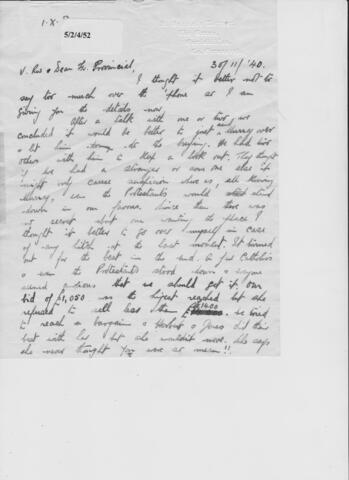 I.X.
5/2/4/52
30/11/'40.
V. Rev & Dear Fr. Provincial,
I thought it better not to
say too much over the 'phone as I am
giving you the details now.
After a talk with one or two, we
concluded it would be better to get Murray over
& let him do the buying. We had two
others with him to keep a look out. They thought
if we had a stranger or some one else it
might only cause suspicion where as, all knowing
Murray, even the Protestants would stand
down in our favour. Since then there was
no secret about our wanting the place I
thought it better to go over myself in case
of any hitch at the last moment. It turned
out for the best in the end. The Catholics
& even the Protestants stood down & everyone
seemed anxious that we should get it. Our
bid of £1,050 was the highest reached but she
refused to sell less than £1400. We tried
to reach a bargain & Herbert & Joes did their
best with her but she wouldn't move. She says
she never thought you were so mean!!